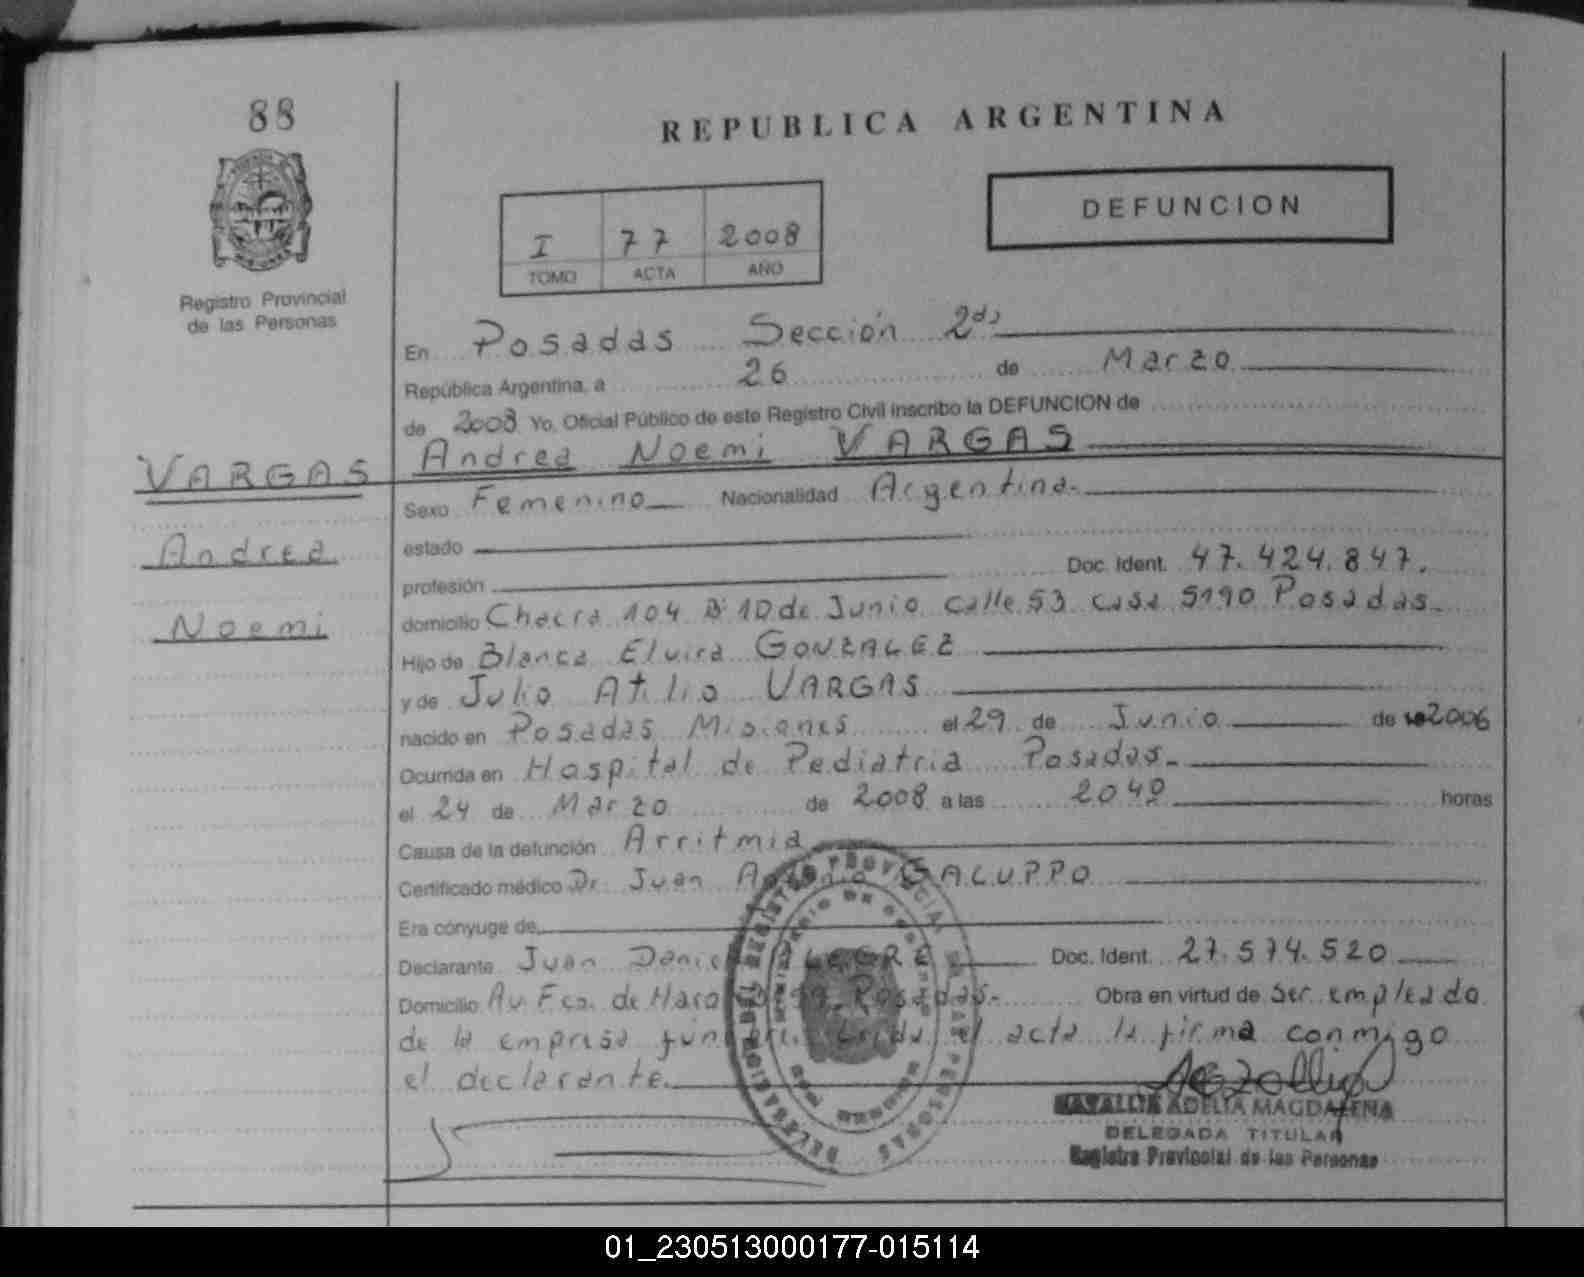 88
REPUBLICA ARGENTINA
DEFUNCION
I 77 2008
TOMO ACTA AÑO
Registro Provincial
de las Personas
En Posadas Sección 2da
República Argentina, a 26 de Marzo
de 2008 Yo, Oficial Público de este Registro Civil inscribo la DEFUNCION de
VARGAS
Andrea
Noemi
Andrea Noemi VARGAS
Sexo Femenino Nacionalidad Argentina.
estado
profesión Doc. Ident. 47.424.847.
domicilio Chacra 104 Bº 10 de Junio calle 53 casa 5190 Posadas.
Hijo de Blanca Elvira GONZALEZ
y de Julio Atilio VARGAS
nacido en Posadas Misiones el 29 de Junio de 2006
Ocurrida en Hospital de Pediatria Posadas.
el 24 de Marzo de 2008 a las 2040 horas
Causa de la defunción Arritmia
Certificado médico Dr. Juan Antonio GALUPPO
Era cónyuge de
Declarante Juan Doc. Ident. 27.574.520
Domicilio Av. Fco. de Haro Posadas. Obra en virtud de ser empleado
de la empresa el acta la firma conmigo
el declarante.
ADELIA MAGDALENA
DELEGADA TITULAR
Registro Provincial de las Personas
01_230513000177-015114